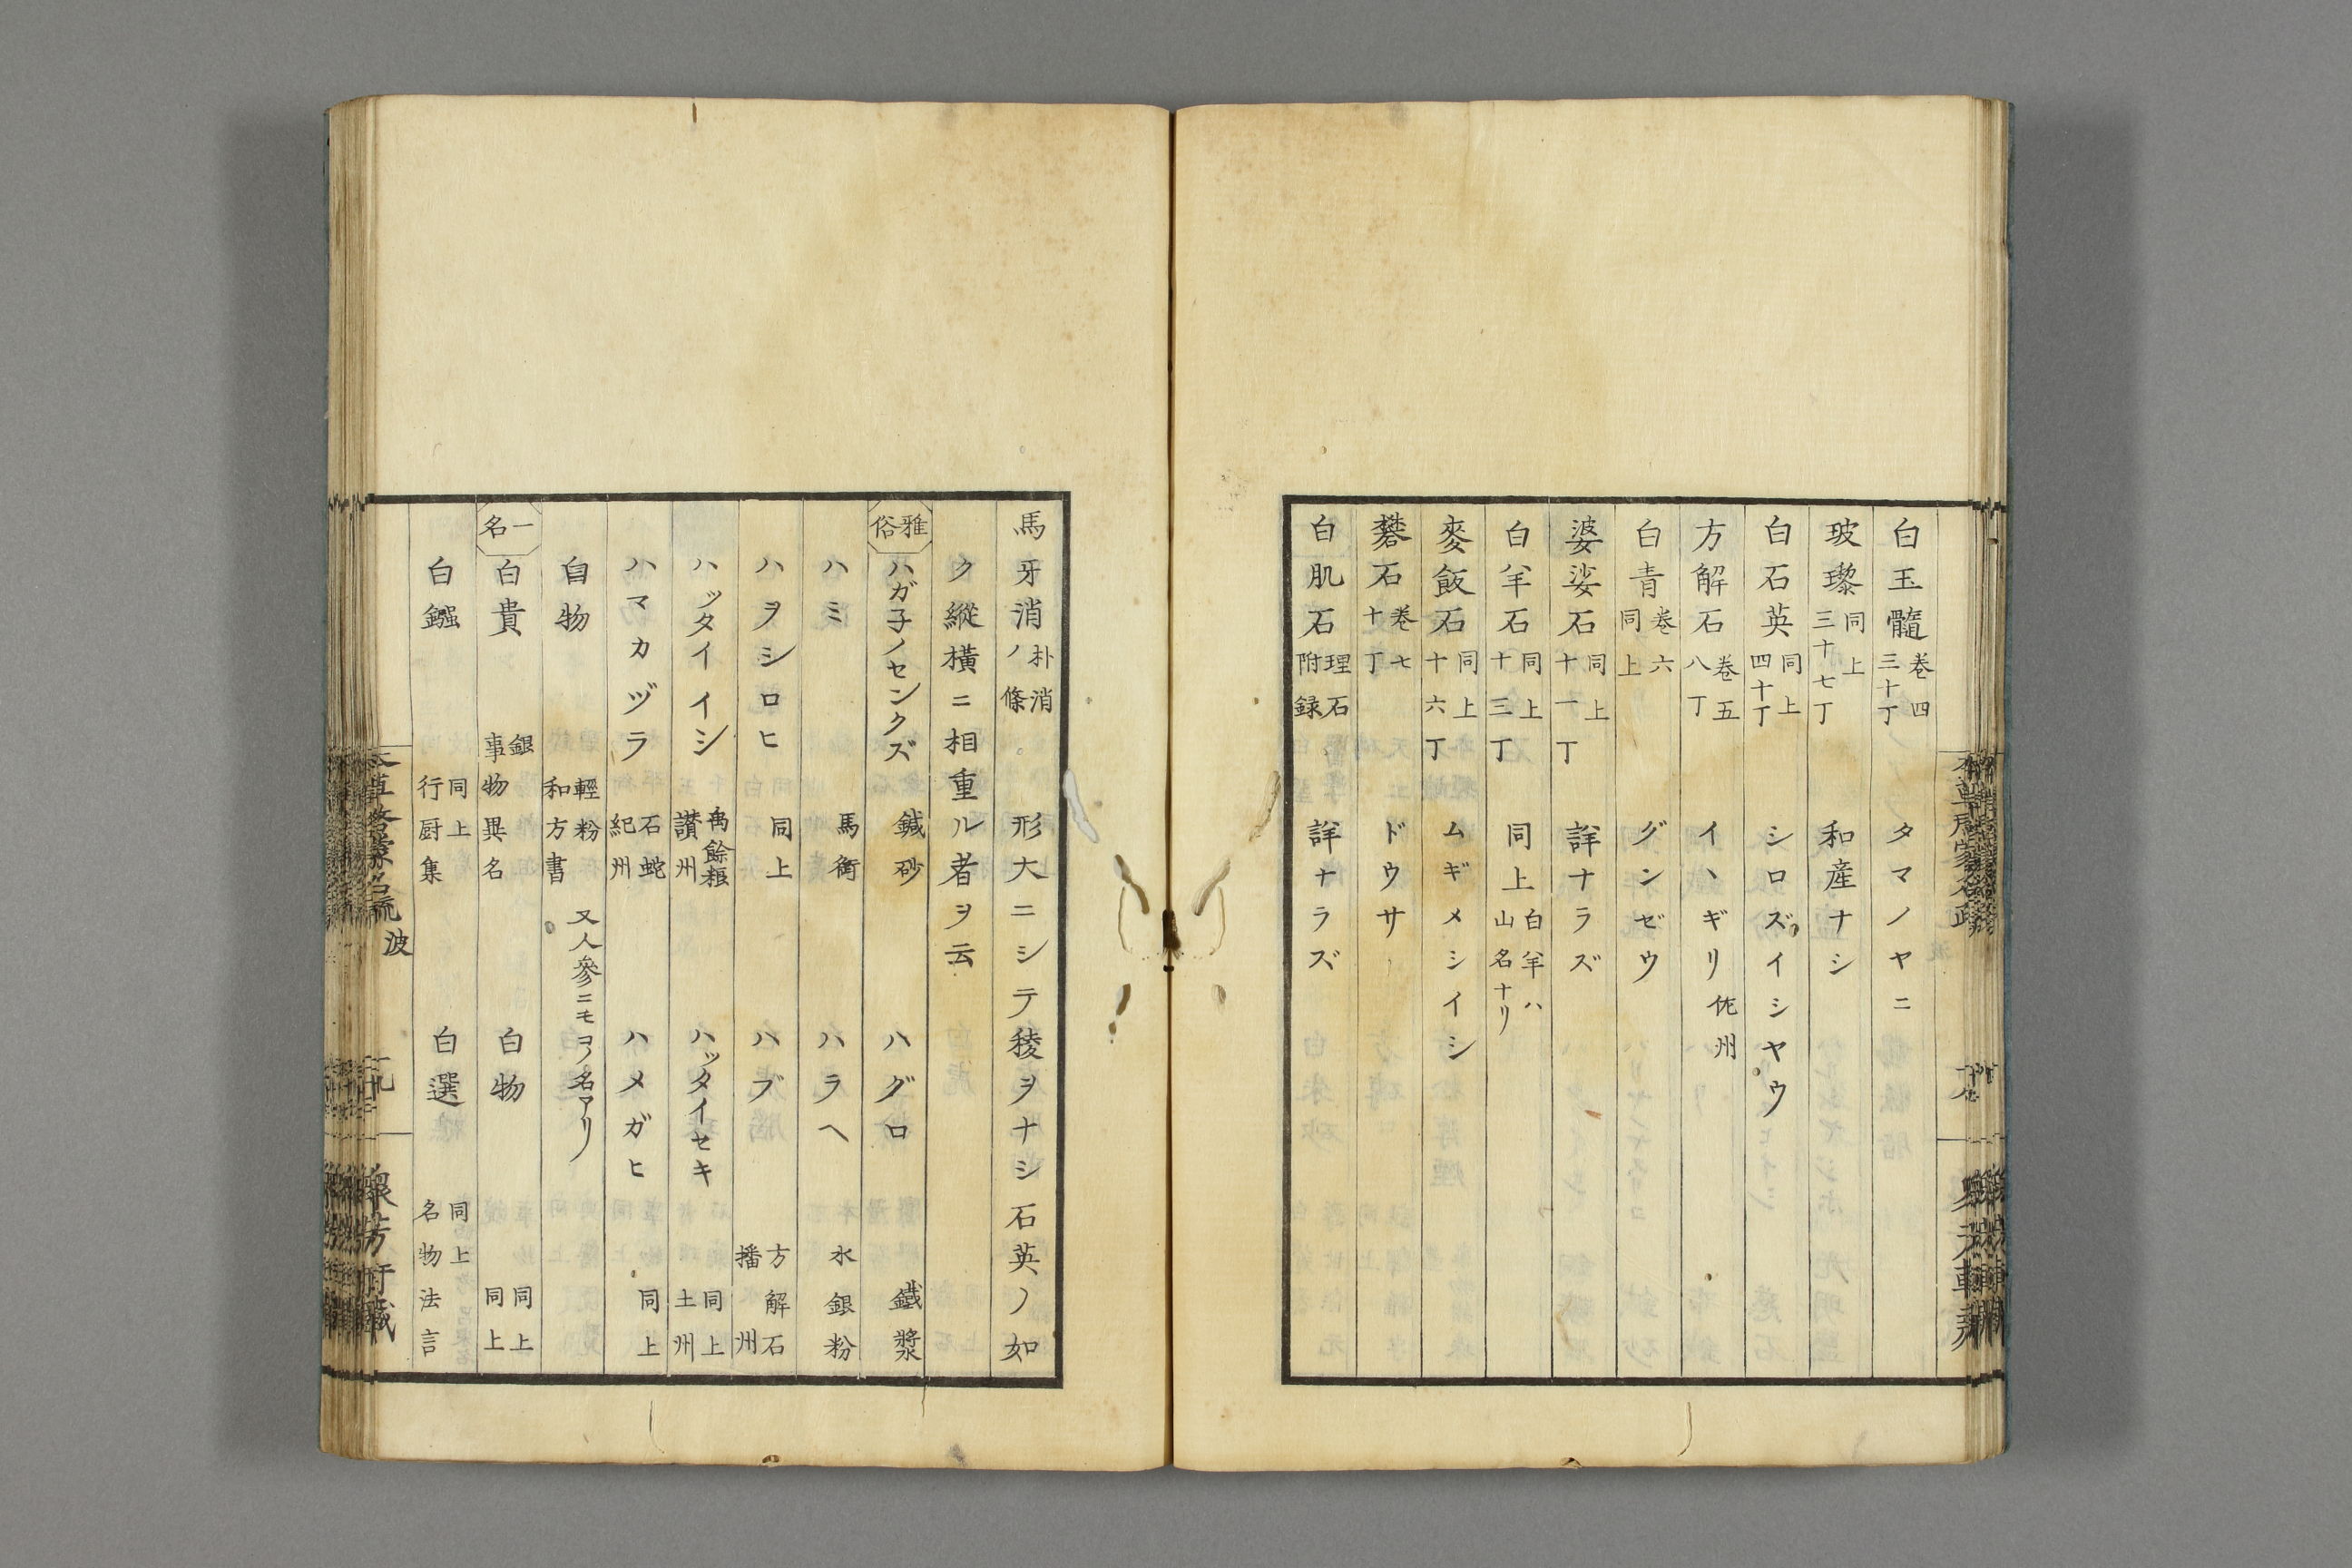 白玉髓 卷四三十丁 タマノヤニ
玻瓈 同上三十七丁 和產ナシ
白石英 同上四十丁 シロズイシヤウ
方解石 卷五八丁 イヽギリ 佐州
白青 卷六同上 グンゼウ
婆娑石 同上十一丁 詳ナラズ
白羊石 同上十三丁 同上 白羊ハ山名ナリ
麥飯石 同上十六丁 ムギメシイシ
礬石 卷七十丁 ドウサ
白肌石 理石附録 詳ナラズ
馬牙消 朴消ノ條 形大ニシテ稜ヲナシ石英ノ如
ク縱橫ニ相重ル者ヲ云
雅俗 ハガ子ノセンクズ 鍼砂 ハグロ 鐵漿
ハミ 馬銜 ハラヘ 水銀粉
ハヲシロヒ 同上 ハブ 方解石播州
ハッタイイシ 禹餘粮讃州 ハッタイセキ 同上土州
ハマカヅラ 石蛇紀州 ハメガヒ 同上
自物 輕粉和方書 又人參ニモコノ名アリ
一名 白貴 銀事物異名 白物 同上同上
白鏹 同上行厨集 白選 同上名物法言
波